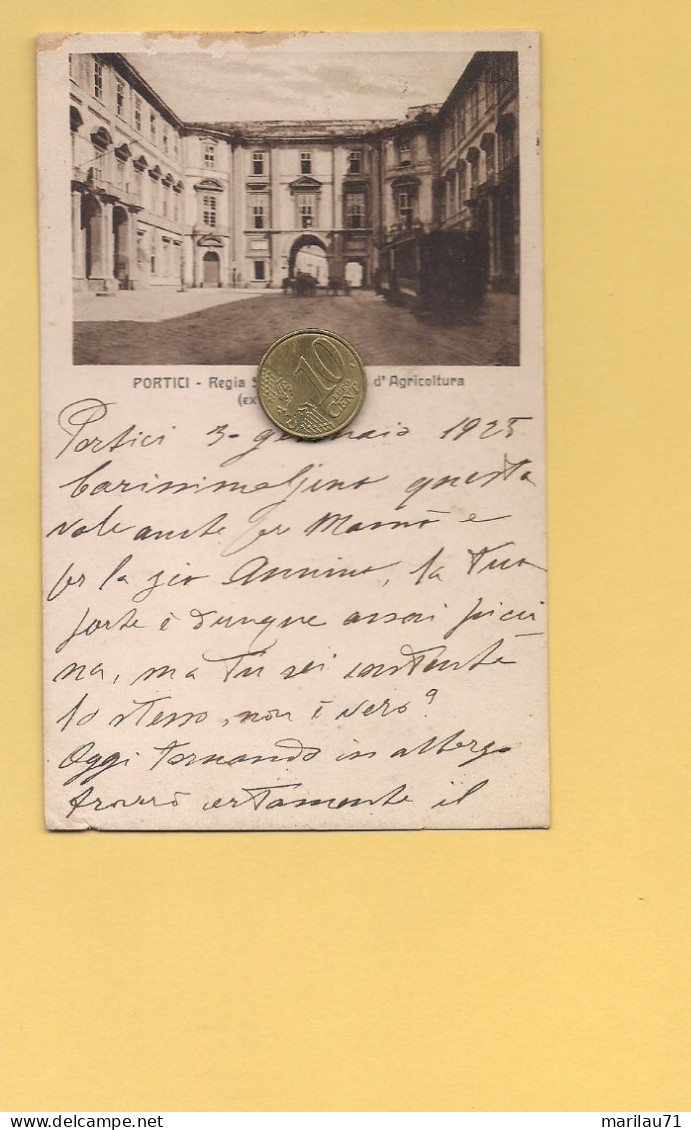 PORTICI - Regia S d' Agricoltura
(ex
10
EURO
CENT
Portici 3 - gennaio 1925
Carissima questa
vale anche per Mamà e
per la zia Annina, la tua
parte è dunque assai picci
na, ma tu sei contenta
lo stesso, non è vero?
Oggi tornando in albergo
troverò certamente il
marilau71